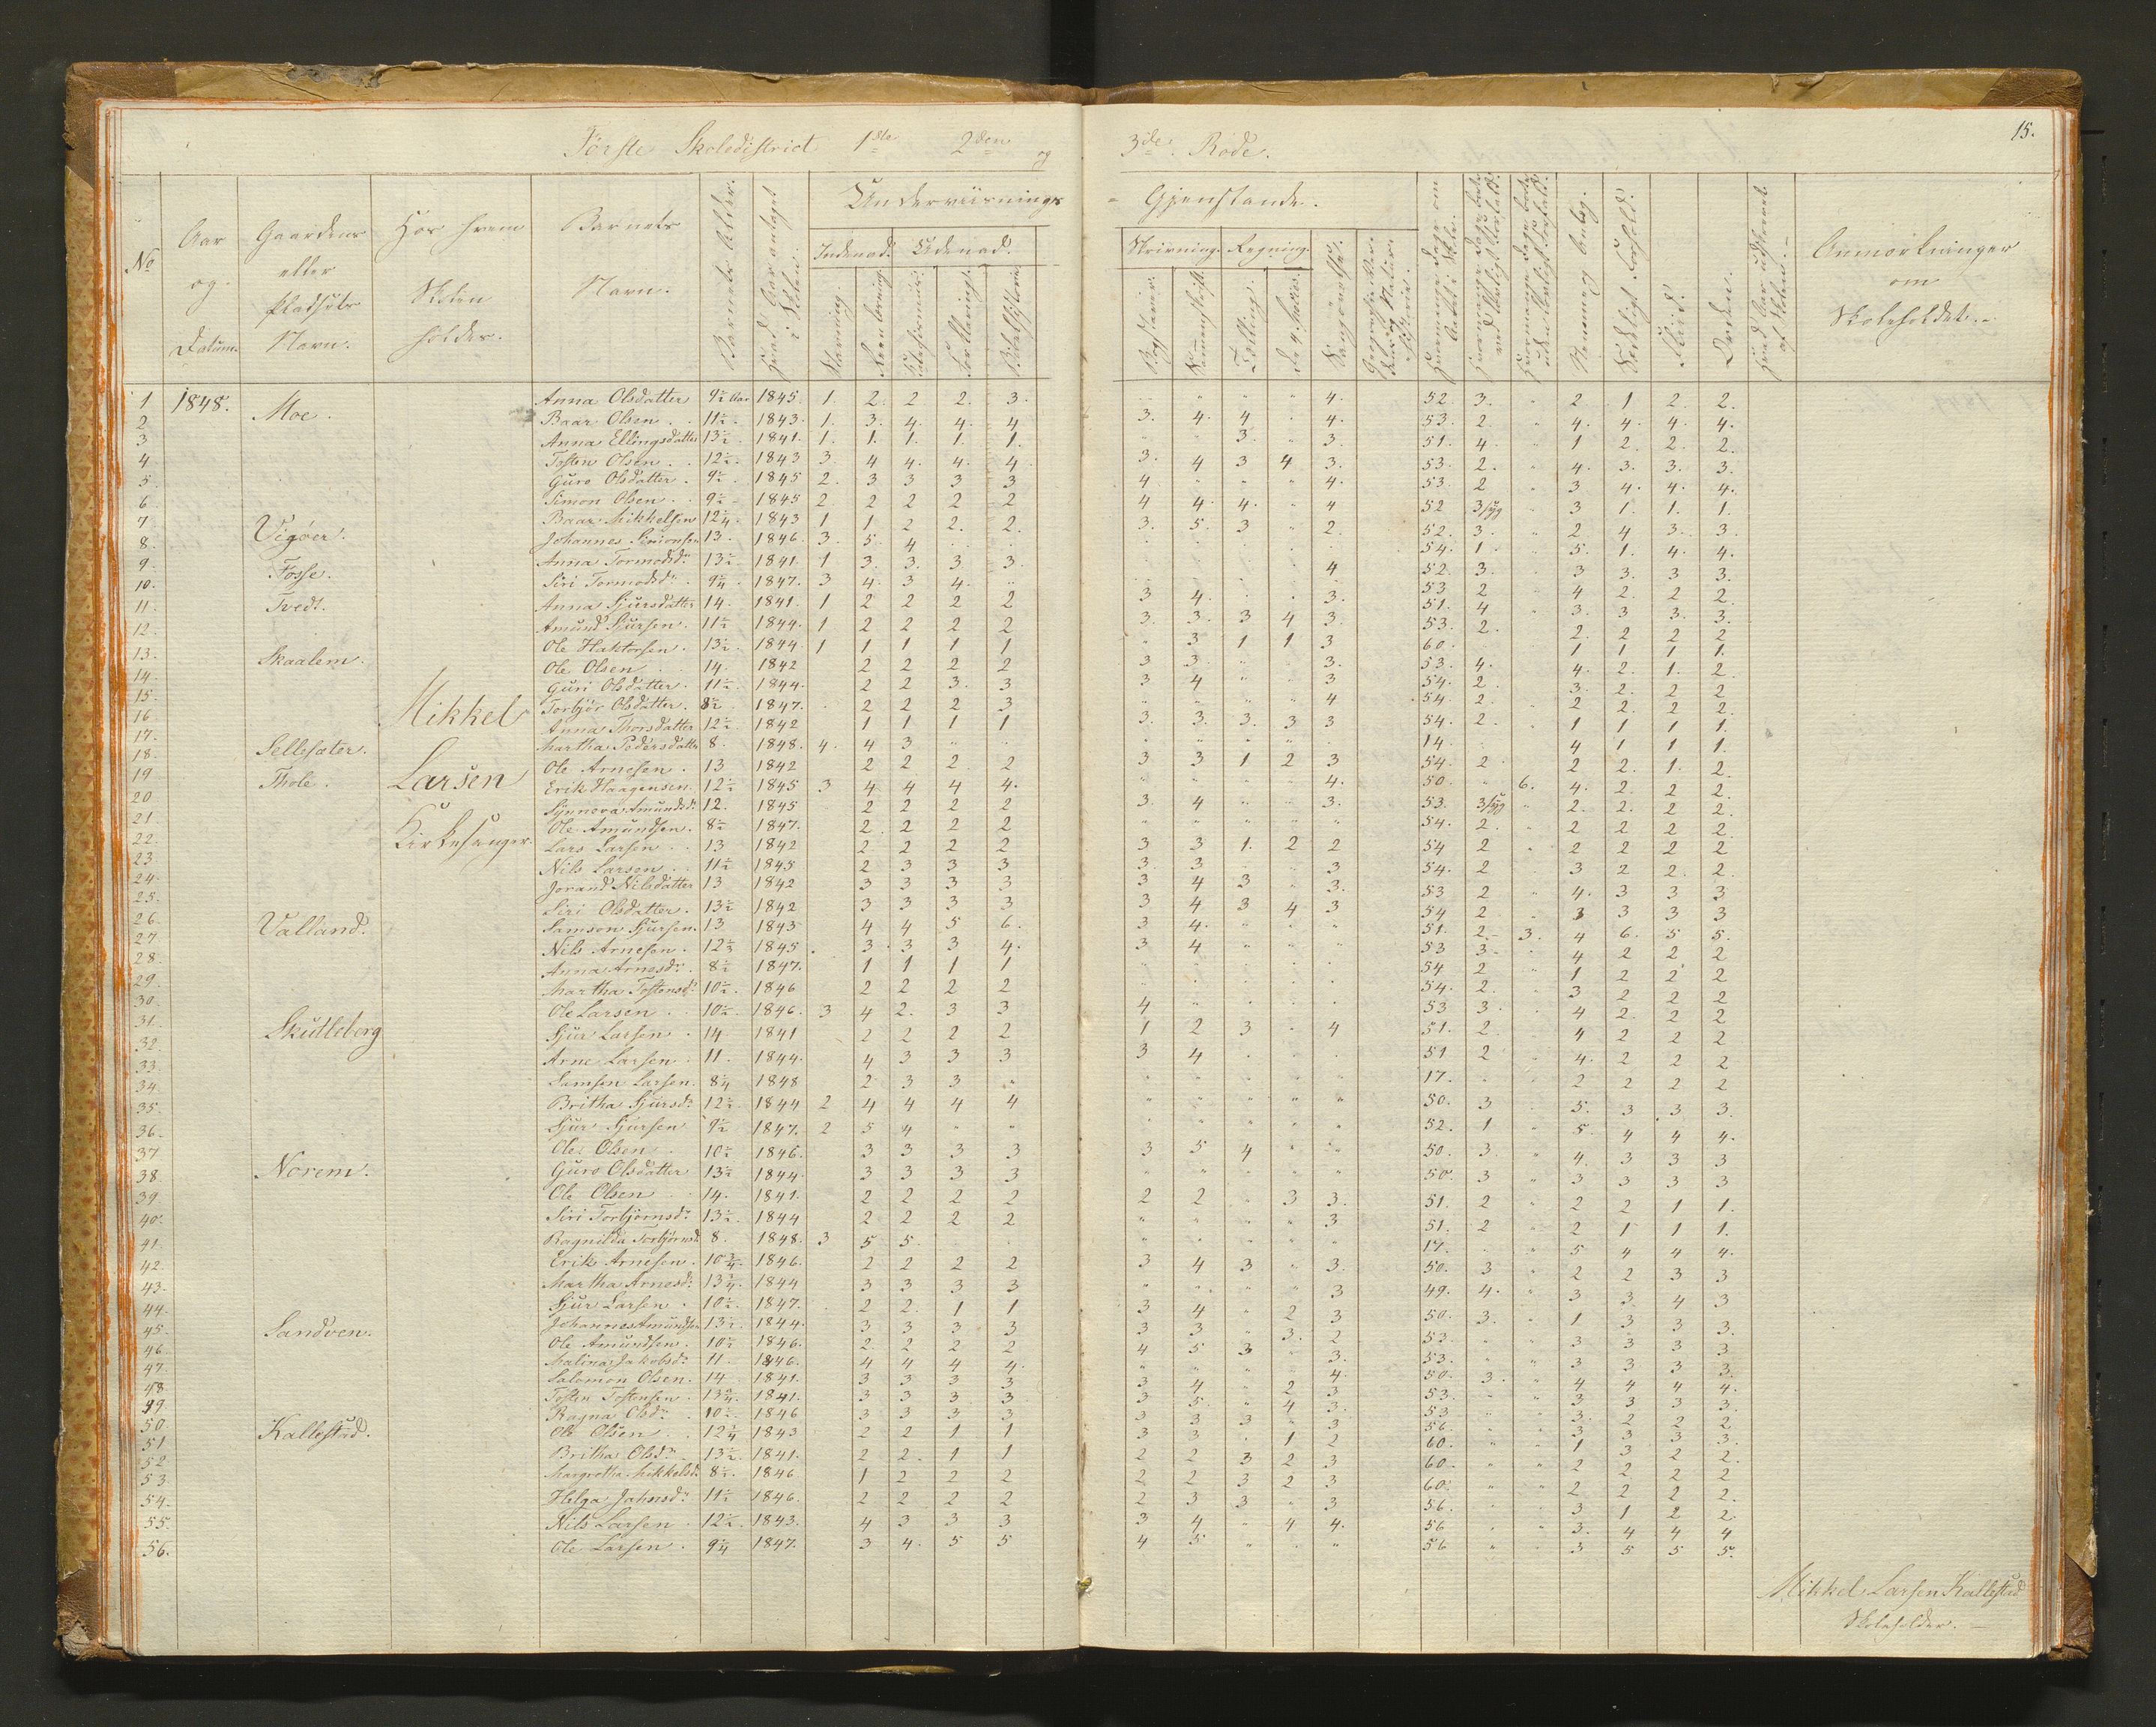 Første Skoledistrict 1ste 2den og 3die Rode.
15.
No
Aar og Datum.
Gaardens eller Pladsets Navn.
Hos hvem Skolen holdes.
Barnets Navn.
Barnets Alder.
Underviisnings - Gjenstande.
Indenad. Udenad.
Skrivning. Regning.
Anmærkninger om Skoleholdet.
1 1848. Moe. Anna Olsdatter 9½ Aar 1845. 1. 2. 2 2. 3. " " " " 4. 52. 3. " 2 1 2. 2.
2 Baar Olsen 11½ 1843. 1. 3. 4. 4. 4 3. 4. 4 " 4. 53. 2. " 4. 4. 4. 4.
3 Anna Ellingsdatter 13½ 1841. 1. 1. 1. 1. 1. " " 3. " 3. 51. 4. " 1 2. 2. 2.
4 Tosten Olsen 12½ 1843 3. 4 4. 4. 4 3. 4 3 4 3. 53. 2. " 4. 3. 3. 3.
5. Guro Olsdatter 9½ 1845 2. 3 3 3 3 4. " " " 4. 53. 2 " 3 4. 4. 4.
6 Simon Olsen 9½ 1845 2 2 2 2 2 4 4. 4. " 4 52 3/syg " 3 1. 1. 1.
7 Vigøer. Baar Mikkelsen 12¼ 1843 1 1 2 2. 2. 3. 5. 3 " 2. 52. 3. " 2 4 3. 3.
8. Johannes Simonsen 13. 1846. 3. 5. 4 54. 1 " 5. 1. 4. 4.
9. Fosse. Anna Tormodsdr 13½ 1841. 1 3. 3. 3. 3. 4 52. 3. " 3 3. 3 3.
10. Siri Tormodsdr 9¼ 1847. 3 4. 3 4. " 3 4. 3. 53 2 " 4 2. 2 2.
11. Tvedt. Anna Sjursdatter 14. 1841. 1 2 2 2 2 3. 3. 3 4 3. 51. 4 " 3. 3 3. 3.
12. Amund Sjursen 11½ 1844. 1 2 2 2 2 " 3 1 1 3 53. 2. 2. 2 2 2
13. Skaalem. Ole Haktorsen 13½ 1844 1 1 1 1 1 3 3. " " 3. 60. 1 1 1 1.
14. Ole Olsen 14. 1842 2 2 2 2 3 4 " " 3 53. 4. 4. 2. 1. 2.
15. Guri Olsdatter 11½ 1844. 2 2 3. 3 " " " " 4 54. 2. 3. 2. 2 2
16. Mikkel Torbjør Olsdatter 8½ 1847. 2 2 2 3 3. 3. 3. 3 3 54 2. " 2 2. 2. 2.
17. Anna Thorsdatter 12½ 1842 1 1 1 1 54. 2. " 1 1 1 1.
18. Sellesæter. Martha Pedersdatter 8. 1848. 4. 4 3 " " 14. 4 1 1 1.
19 Thole. Larsen Ole Arnesen 13 1842 2 2 2. 2 3 3 1 2 3 54. 2 2 2. 1. 2.
20 Erik Haagensen 12½ 1845 3 4 4 4 4. " " " " 4. 50. " 6. 4. 2. 2 2.
21. Kirkesanger. Synnova Amundsdr 12. 1845 2 2 2 2 3. 4 " " 3. 53. 3/syg " 2. 2. 2 2.
22. Ole Amundsen 8½ 1847. 2. 2 2 2 " " " " " 54. 2. " 2 2 2 2.
23 Lars Larsen 13 1842 2 2 2 2 3 3 1. 2 2 54 2 " 2 2 2 2
24. Nils Larsen 11½ 1845 2 3 3 3 3. 3 " " 3 54. 2 " 3 2 2. 2.
25. Jorand Nilsdatter 13 1842 3 3 3 3 3 4 3 " 3. 53 2 " 4. 3 3 3
26. Siri Olsdatter 13½ 1842 3 3 3 3 3 4 3 4 3 54 2 " 3 3 3 3
27. Valland. Samson Sjursen 13 1843 4 4 5 6. 3 4. " " " 51. 2. 3. 4 6. 5 5.
28. Nils Arnesen 12⅓ 1845. 3. 3 3 4. 3 4 " " " 53 3 4 2 2 2
29. Anna Arnesdr 8½ 1847. 1 1 1 1 54 2 " 1 2 2 2
30. Martha Tostensdr 10½ 1846 2 2 2 2 54. 2. 3 2 2 2
31. Ole Larsen 10½ 1846. 3 4 2. 3 3 4 " " " " 53 3 4 2. 2. 2
32 Skutleberg Sjur Larsen 14 1841 2 2 2 2 1 2 3 " 4 51. 2 4 2 2 2
33. Arne Larsen 11. 1844. 4 3 3 3 3 4 51 2 4. 2 2 2
34. Samson Larsen 8¼ 1848 2 3 3 " 17. 2 2 2 2
35. Britha Sjursdr 12½ 1844 2 4 4 4 4 " " " " " 50. 3 5. 3 3 3.
36. Sjur Sjursen 9½ 1847. 2 5 4 " " " " " " " 52. 1 " 5. 4 4 4.
37 Ole Olsen 10½ 1846. 3 3 3 3 3 5 4 " " 50. 3. " 4. 3 3 3
38. Norem. Guro Olsdatter 13½ 1844. 3 3 3 3 " " " " " 50. 3 " 3 3 3 3
39. Ole Olsen 14. 1841. 2 2 2 2 2 2 " 3 3. 51. 2 " 2 2 1 1.
40. Siri Torbjørnsdr 13½ 1844 2 2 2 2 " " " " 3 51. 2 " 2 1 1 1.
41. Ragnilda Torbjørnsd. 8. 1848. 3 5 5 " " " " " 17. " " 5 4 4 4.
42. Erik Arnesen 10¾ 1846. 2 2 2 2 3 4 3 " 3. 50. 3 " 2 2 3 3
43. Martha Arnesdr 13¾ 1844 3 3 3 3 " " " " 3 49. 4. " 3 3 4 3
44. Sjur Larsen 10½ 1847. 2 2. 1 1 3 4 " 2 3 50. 3. " 1 3 3 3.
45. Sandven. Johannes Amundsen 13½ 1844. 3 3 3 3 3 3 " 3. 2 53. " " 3 3 3 3
46. Ole Amundsen 10½ 1846. 2 2 2 2 4 5 3 " 3. 53. " " 3 3 3 3.
47. Malina Jakobsdr 11. 1846. 4 4 4 4. " " " " 4. 50. 3. " 4 4 4 4.
48. Salomon Olsen 14 1841. 3 3 3 3 3 4 " 2 3 53. " " 3 3 3 3.
49. Tosten Tostensen 13¾ 1841. 3 3 3 3 3 5 " 4 3. 53 " " 3. 2 2 2.
50. Ragna Olsdr 10½ 1846 3 3 3 3 3 3 3 " 3 56. 3 3 3.
51 Kallestad. Ole Olsen 12¼ 1843 2 2 1 1 3 3 " 1 2 60. " " 1 3 2 2.
52 Britha Olsdr 13½ 1841. 2 2. 1 1 2 2 3 2 3 60. " " 2 2 2 2
53 Margretha Mikkelsd. 8½ 1846 1 2 2 2 2 2 3 2 3 60. " " 2 2 2 2.
54. Helga Jahnsdr 11½ 1846. 2 2 2 2 2 3 3 " 3 56. " " 3 1 2 2.
55. Nils Larsen 12½ 1843. 4 3 3 3 3 4 " 4 4. 56 " " 3. 4 4 4
56. Ole Larsen 9¼ 1847. 3 4. 5 5 4 5 " " " 56 " " 3 5 5 5.
Mikkel Larsen Kallestad
Skoleholder.